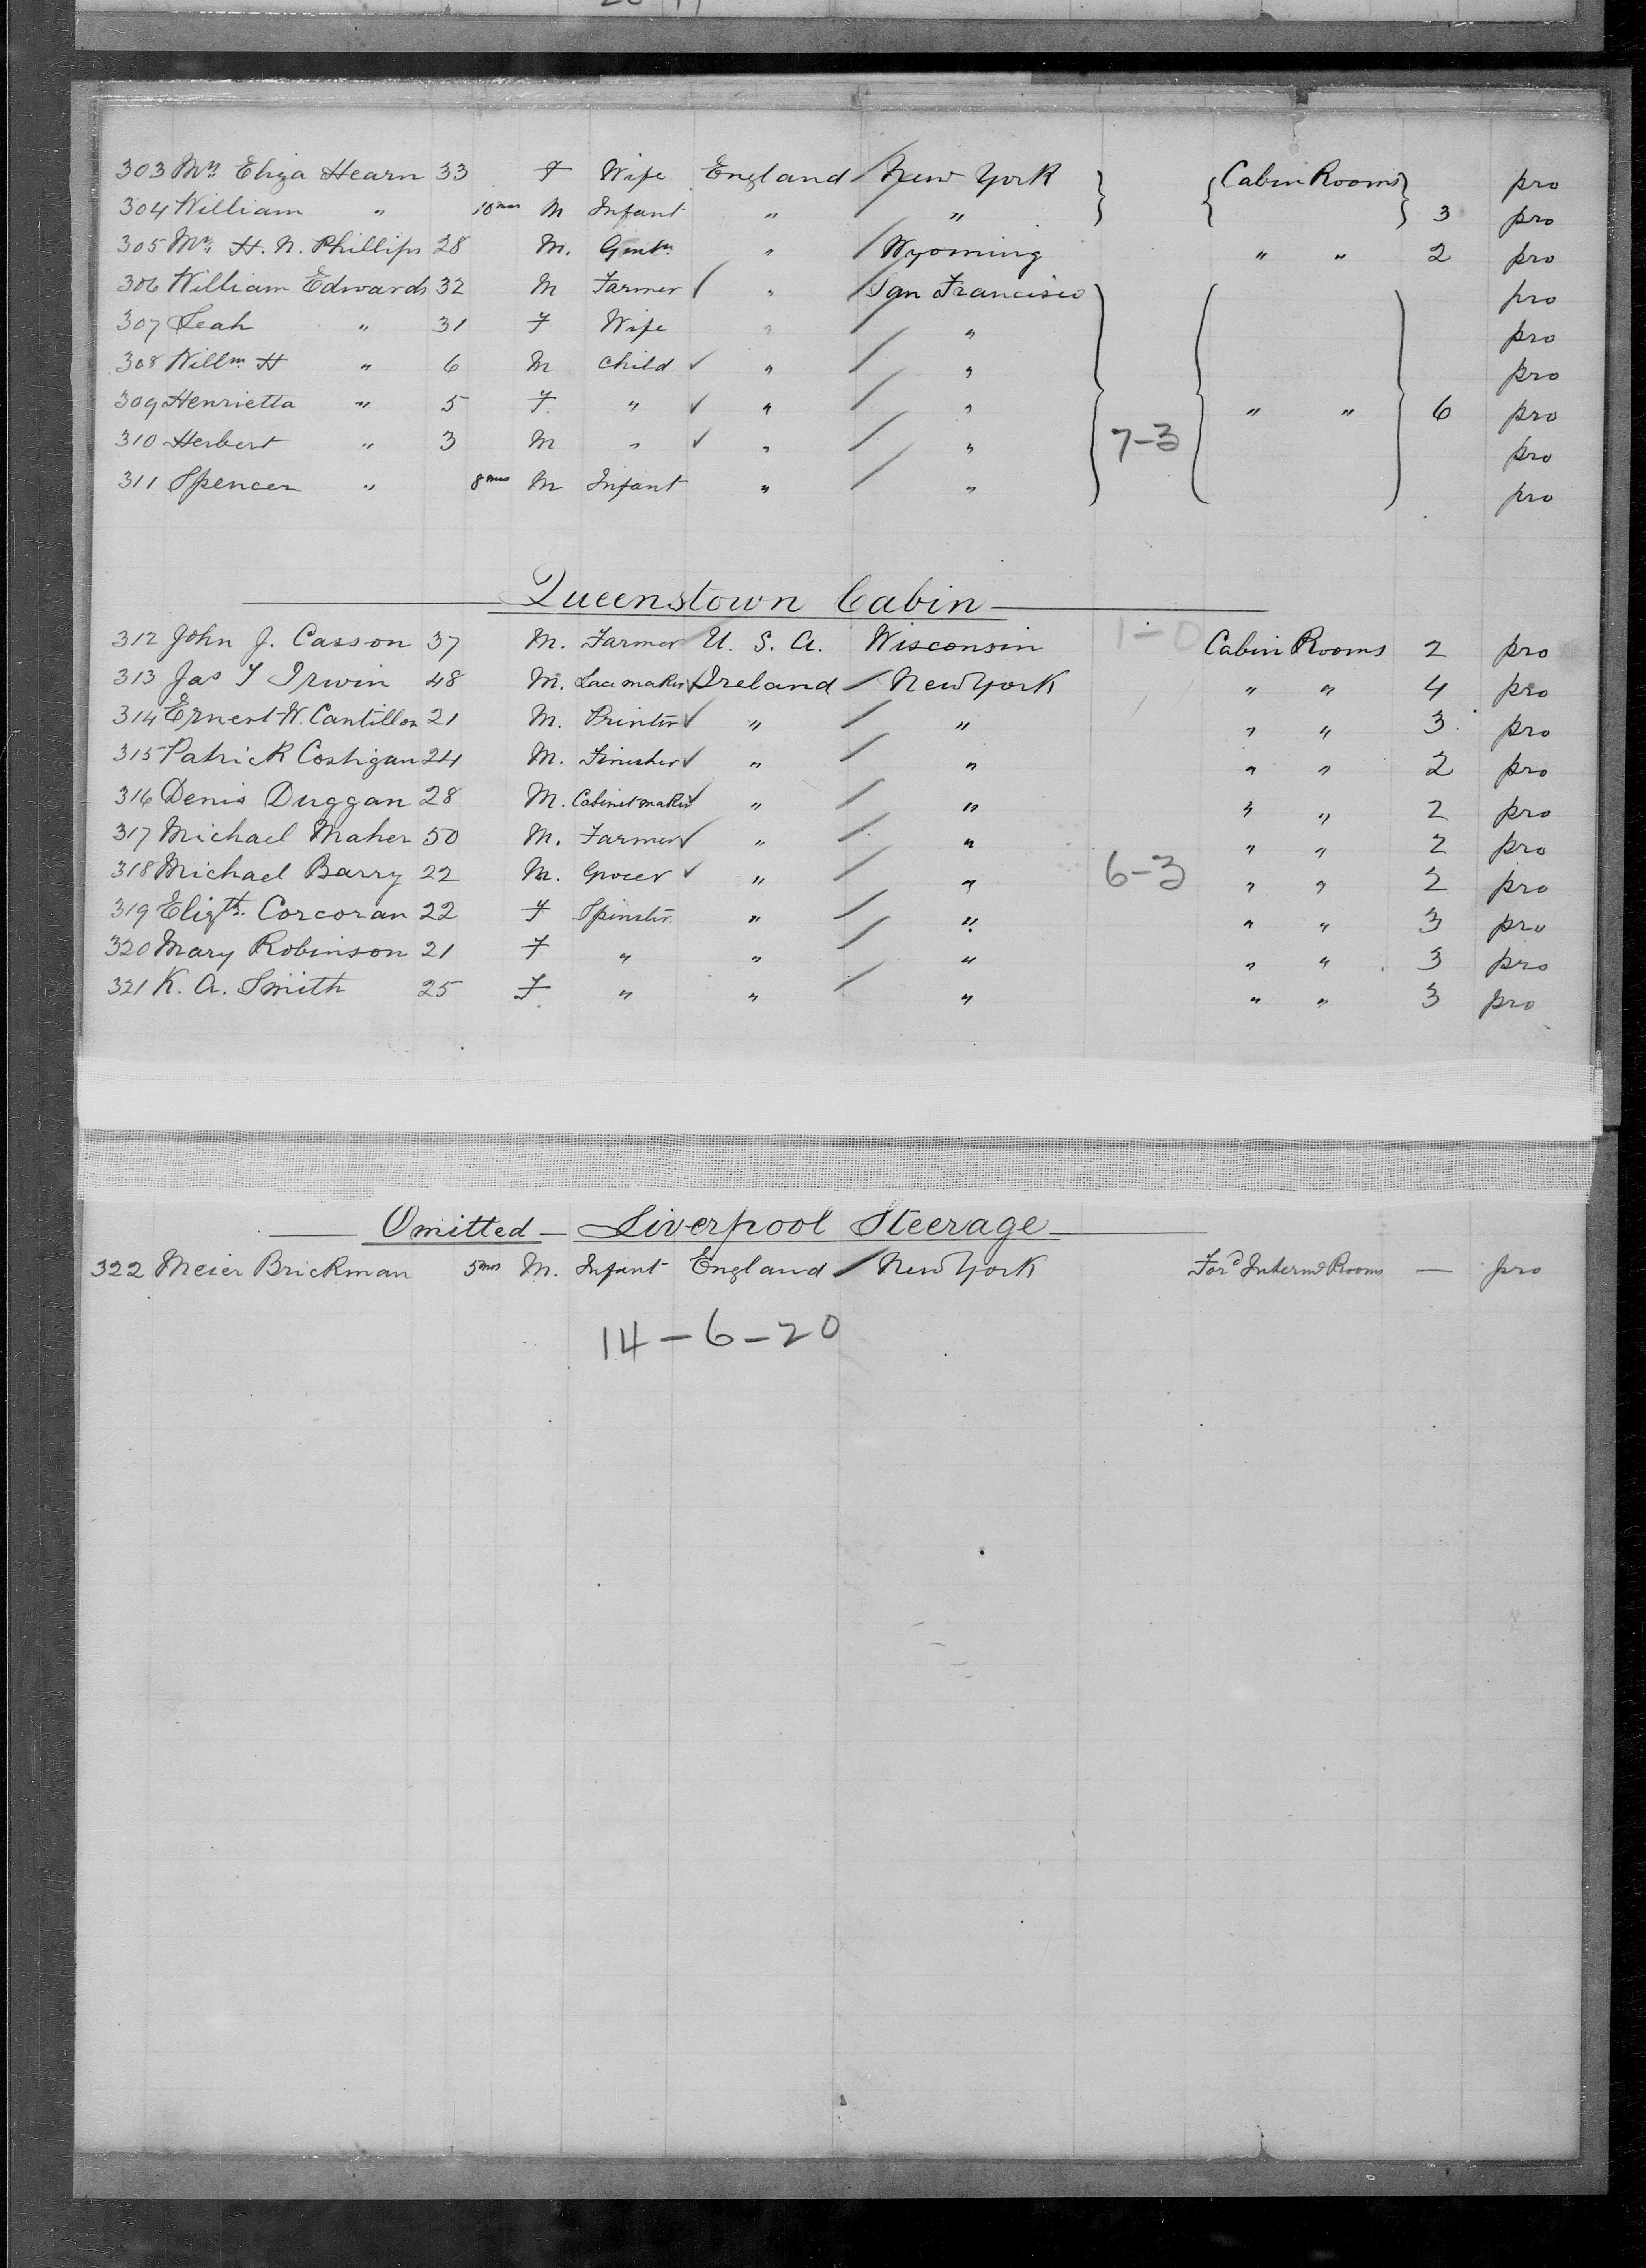 303 Mrs Eliza Hearn 33 F Wife England / New York } { Cabin Rooms } pro
304 William " 10 mos M Infant " " 3 pro
305 Mr. H. N. Phillips 28 M. Gentn. " / Wyoming " " 2 pro
306 William Edwards 32 M Farmer ✓ " / San Francisco pro
307 Leah " 31 F Wife " / " pro
308 Willm H " 6 M Child ✓ " / " pro
309 Henrietta " 5 F. " ✓ " / " " " 6 pro
310 Herbert " 3 M " ✓ " / " 7-3 pro
311 Spencer " 8 mos M Infant " / " pro
Queenstown Cabin
312 John J. Casson 37 M. Farmer U. S. A. Wisconsin 1-0 Cabin Rooms 2 pro
313 Jas T Irwin 48 M. Lace maker ✓ Ireland / New York " " 4 pro
314 Ernest W. Cantillon 21 M. Printer ✓ " / " " " 3 pro
315 Patrick Costigan 24 M. Finisher ✓ " / " " " 2 pro
316 Denis Duggan 28 M. Cabinet maker ✓ " / " " " 2 pro
317 Michael Maher 50 M. Farmer ✓ " / " " " 2 pro
318 Michael Barry 22 M. Grocer ✓ " / " 6-3 " " 2 pro
319 Elizth. Corcoran 22 F Spinster " / " " " 3 pro
320 Mary Robinson 21 F " " / " " " 3 pro
321 K. A. Smith 25 F " " / " " " 3 pro
Omitted - Liverpool Steerage
322 Meier Brickman 5 mos M. Infant England / New York Ford Intermd Rooms — pro
14-6-20